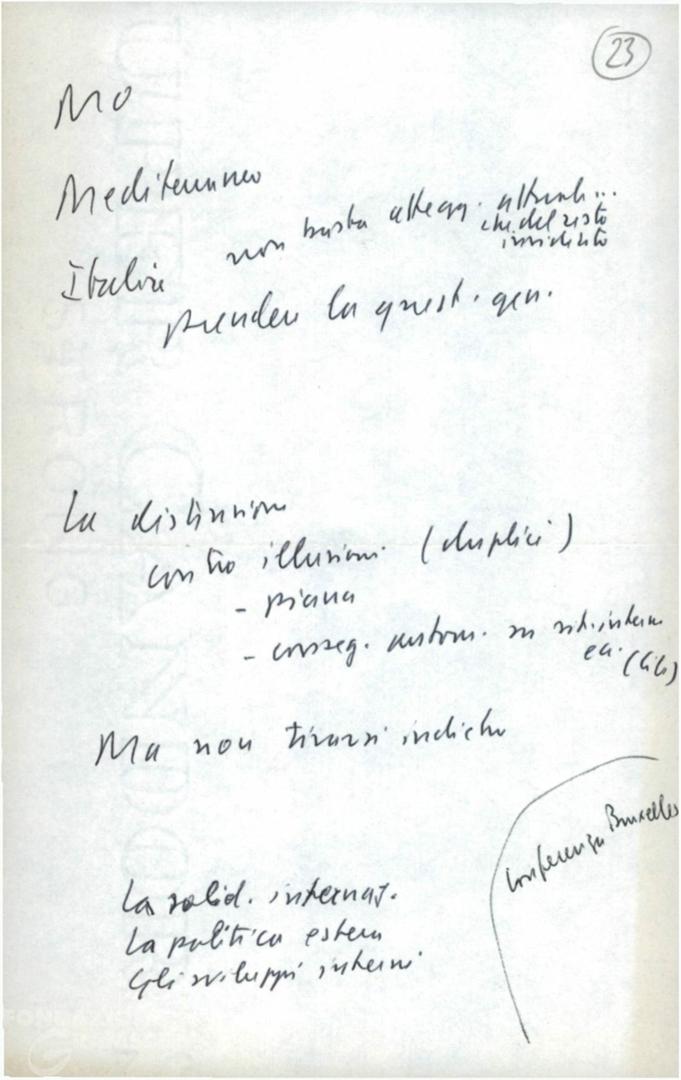 23
MO
Mediterraneo
non basta attegg. attuali...
che del resto
insidiato
Italia
prendere la quest. gen.
La distensione
contro illusioni (duplici)
- piana
- conseg. autom. su sit. interne
ecc.
Ma non tirarsi indietro
Conferenza Bruxelles
La solid. internaz.
La politica estera
Gli sviluppi interni